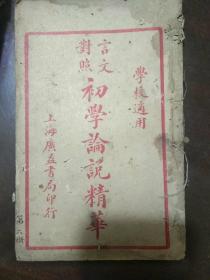 學校適用
言文
對照
初學論説精華
上海廣益書局印行
第六册